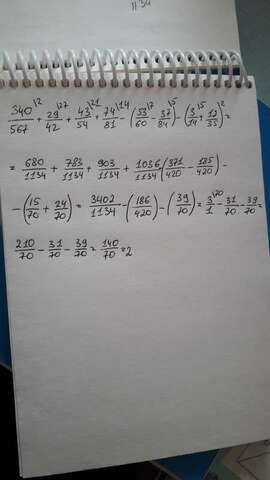 1134
340/567^2 + 29/42^27 + 43/54^21 + 74/81^14 - (53/60^7 - 37/84^5) - (3/14^5 + 12/35^2) =
= 680/1134 + 783/1134 + 903/1134 + 1036/1134 (371/420 - 185/420) -
- (15/70 + 24/70) = 3402/1134 - (186/420) - (39/70) = 3/1^70 - 31/70 - 39/70 =
210/70 - 31/70 - 39/70 = 140/70 = 2